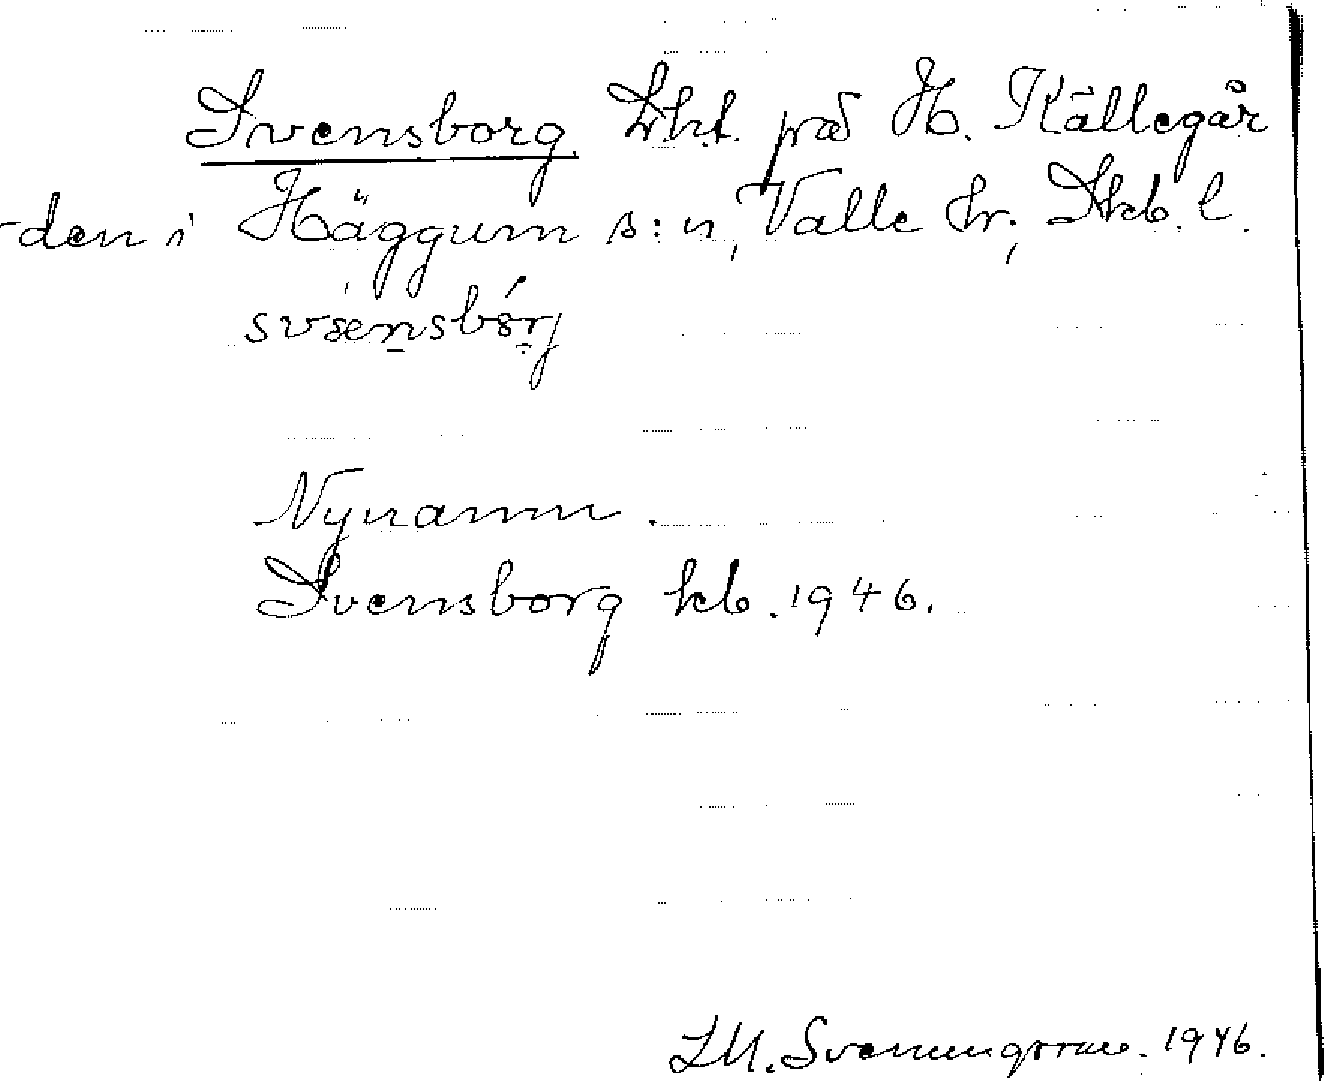 Svensborg. Lht. på H. Källegår
-den i Häggum s:n, Valle hr; Skb. l.
svensbórj
Nynamn.
Svensborg kb. 1946.
S.M. Svenungsson. 1946.